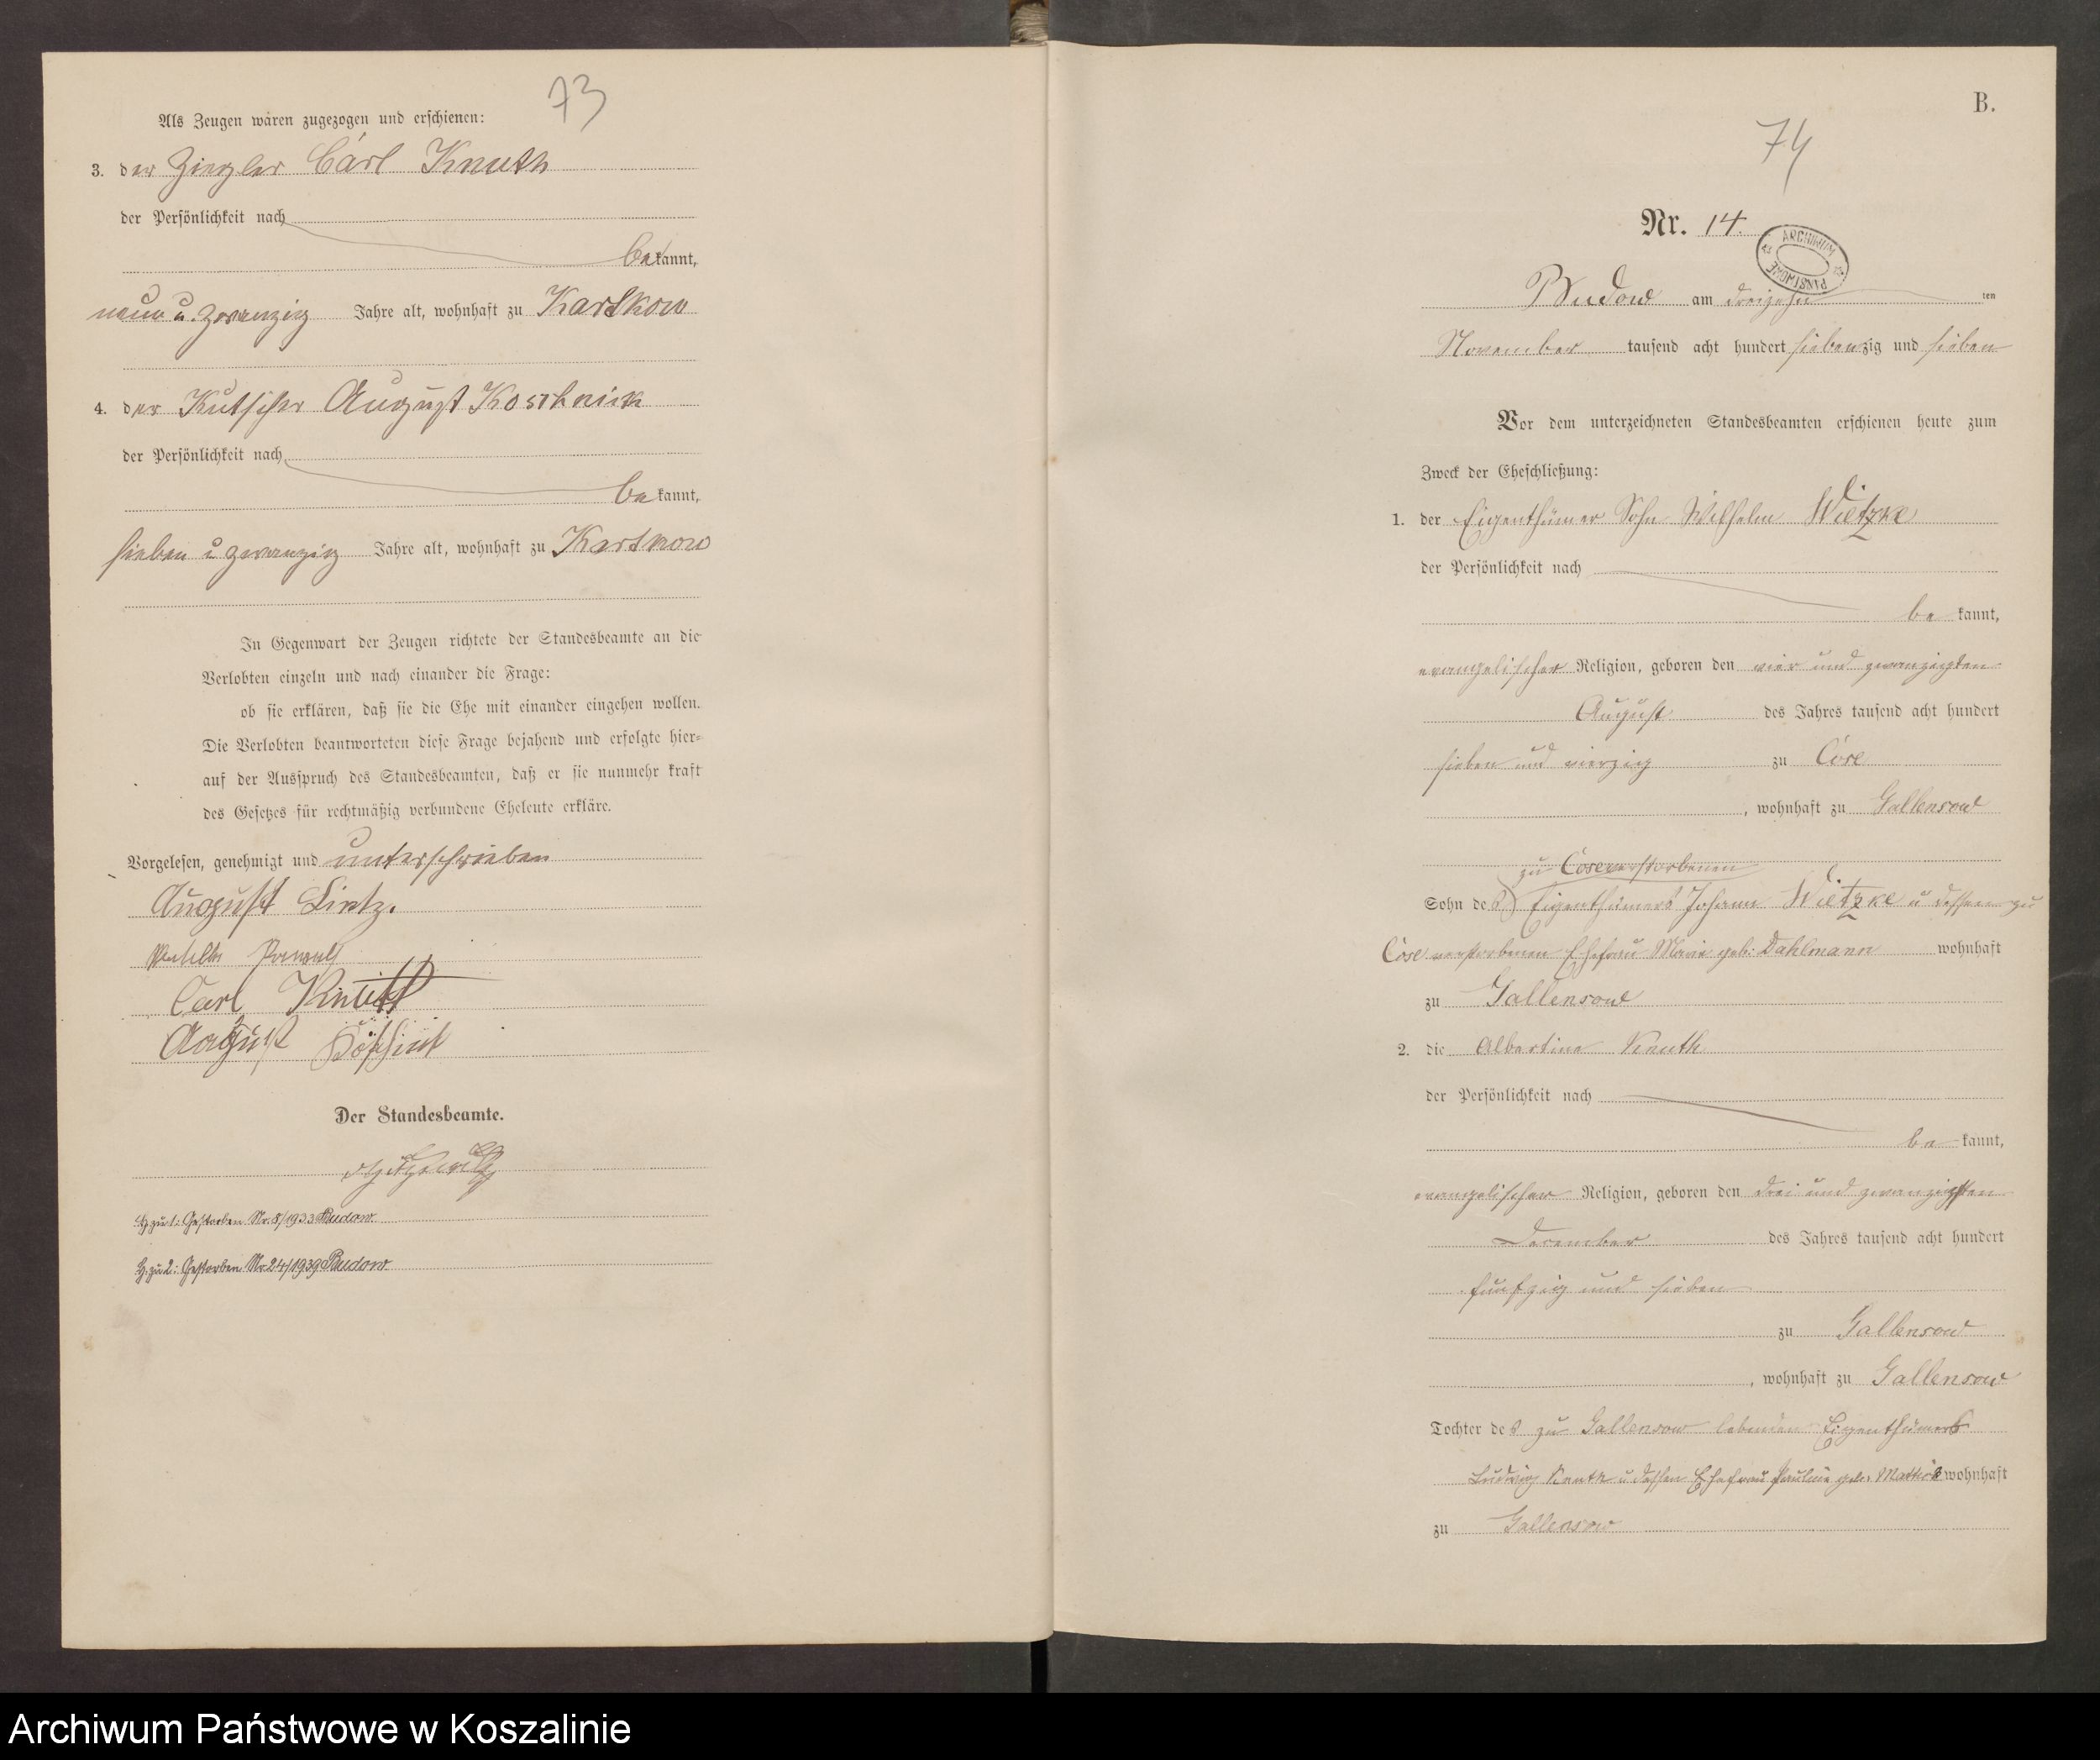 73
Als Zeugen waren zugezogen und erschienen:
3. der Ziegler Carl Knuth
der Persönlichkeit nach
bekannt,
neun u. zwanzig Jahre alt, wohnhaft zu Karstkow
4. der Kutscher August Koschnick
der Persönlichkeit nach
bekannt,
sieben u zwanzig Jahre alt, wohnhaft zu Karstkow
In Gegenwart der Zeugen richtete der Standesbeamte an die
Verlobten einzeln und nach einander die Frage:
ob sie erklären, daß sie die Ehe mit einander eingehen wollen.
Die Verlobten beantworteten diese Frage bejahend und erfolgte hier-
auf der Ausspruch des Standesbeamten, daß er sie nunmehr kraft
des Gesetzes für rechtmäßig verbundene Eheleute erkläre.
Vorgelesen, genehmigt und unterschrieben
August Lietz.
Carl Knuth
August
Der Standesbeamte.
H. zu 1: Gestorben Nr. 8/1933 Budow
H. zu 2: Gestorben Nr. 24/1939 Budow
B.
74
Nr. 14.
ARCHIWUM PAŃSTWOWE
Budow am dreizehn ten
November tausend acht hundert siebenzig und sieben
Vor dem unterzeichneten Standesbeamten erschienen heute zum
Zweck der Eheschließung:
1. der Eigenthümer Sohn Wilhelm Wietzke
der Persönlichkeit nach
bekannt,
evangelischer Religion, geboren den vier und zwanzigsten
August des Jahres tausend acht hundert
sieben und vierzig zu Cose
, wohnhaft zu Gallensow
zu Cose verstorbenen
Sohn des Eigenthümers Johann Wietzke u dessen zu
Cose verstorbenen Ehefrau Marie geb: Dahlmann wohnhaft
zu Gallensow
2. die Albertine Knuth
der Persönlichkeit nach
bekannt,
evangelischer Religion, geboren den drei und zwanzigsten
December des Jahres tausend acht hundert
fünfzig und sieben
zu Gallensow
, wohnhaft zu Gallensow
Tochter des zu Gallensow lebenden Eigenthümers
Ludwig Knuth u dessen Ehefrau Pauline geb. wohnhaft
zu Gallensow
Archiwum Państwowe w Koszalinie